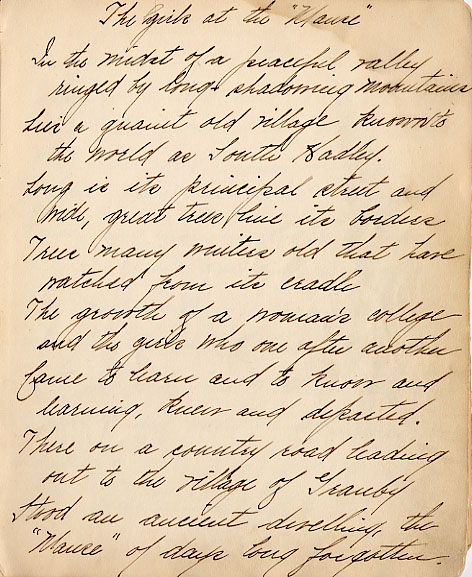 The Girls at the "Manse"
In the midst of a peaceful valley
ringed by long-shadowing mountains
Lies a quaint old village known to
the world as South Hadley.
Long is its principal street and
wide, great trees line its borders
Trees many winters old that have
watched from its cradle
The growth of a woman's college
and the girls who one after another
Came to learn and to know and
learning, knew and departed.
There on a country road leading
out to the village of Granby
Stood an ancient dwelling, the
"Manse" of days long forgotten.